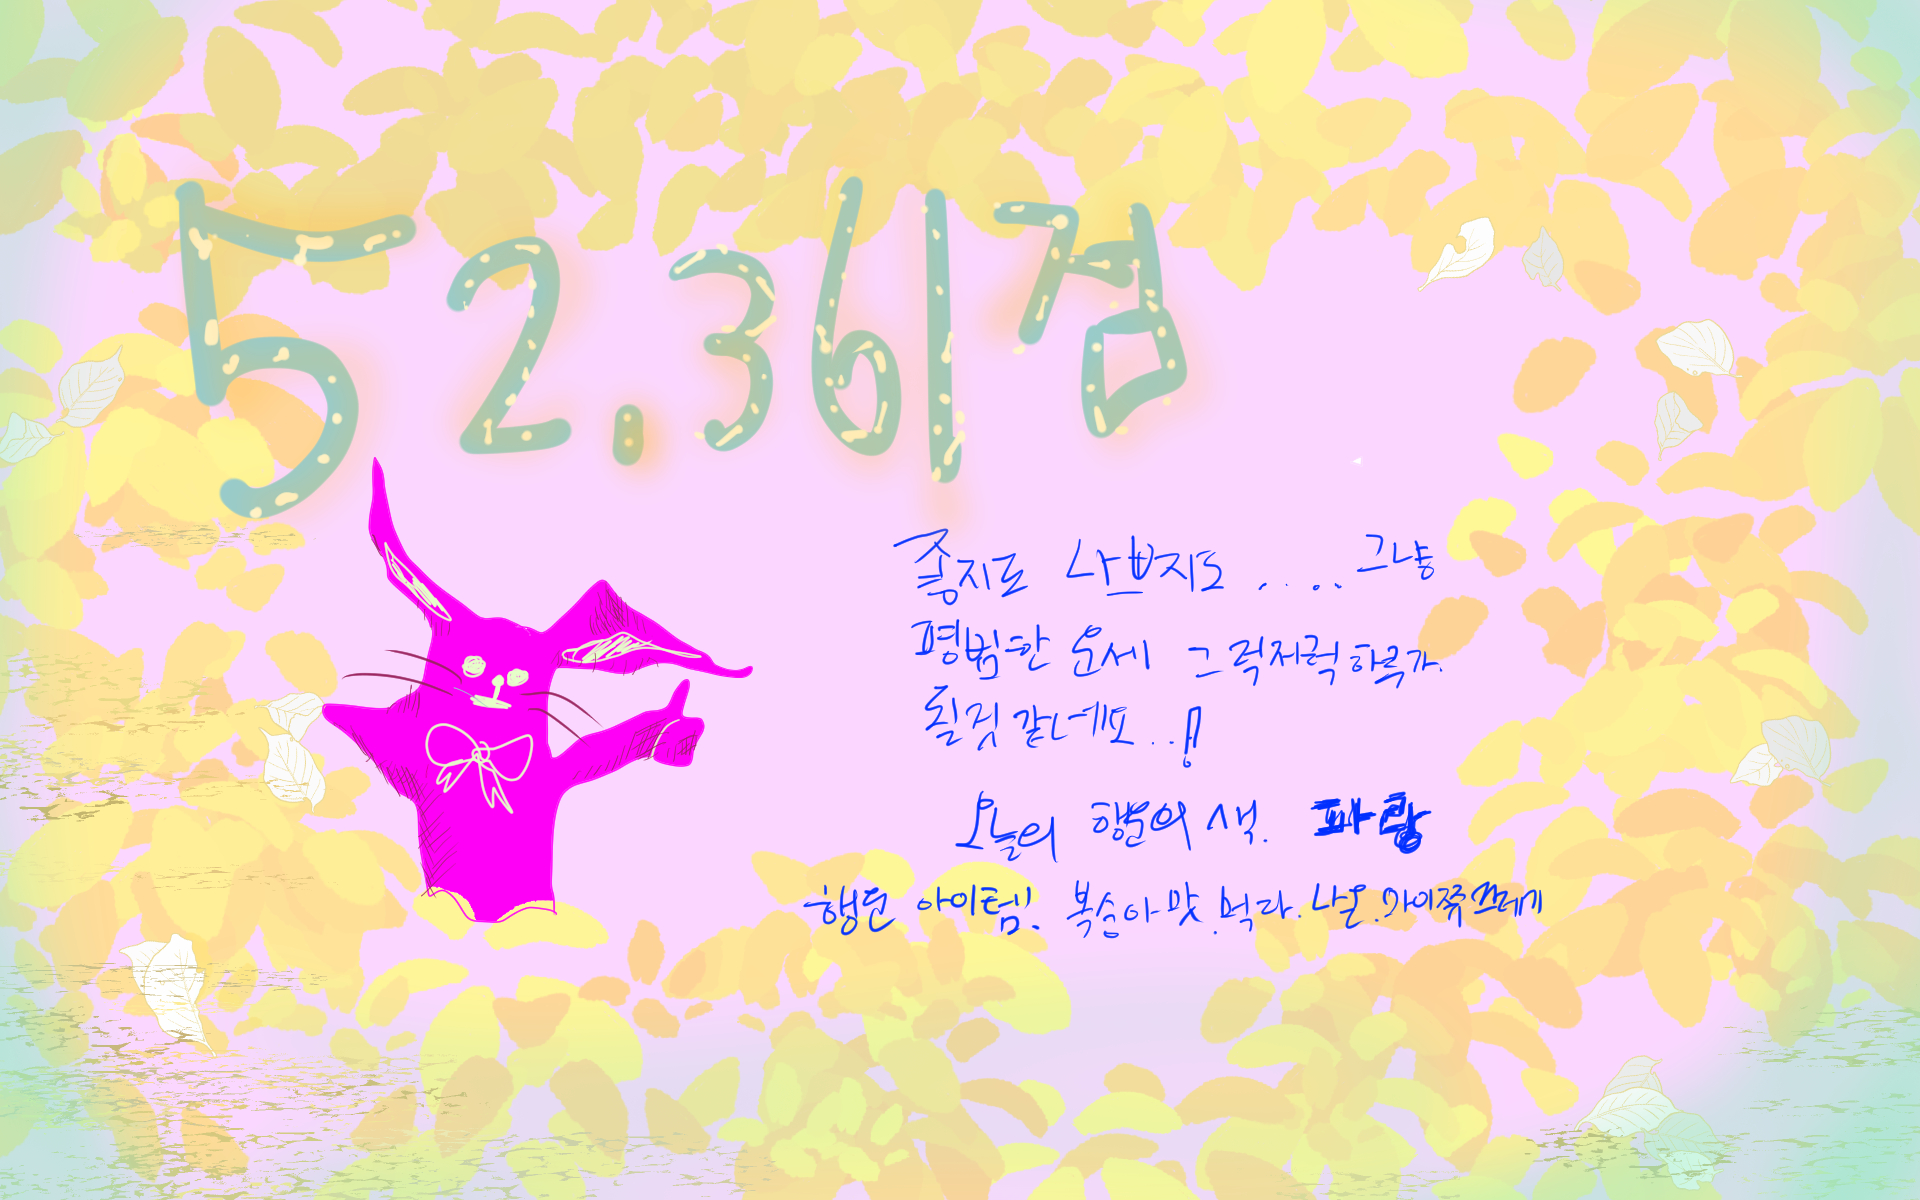 52.361점
좋지도 나쁘지도 .... 그냥
평범한 운세 그럭저럭 하루가.
될것 같네요..!!
오늘의 행운의 색. 파랑
행운 아이템. 복숭아 맛. 먹다. 나온. 마이쮸 쓰레기